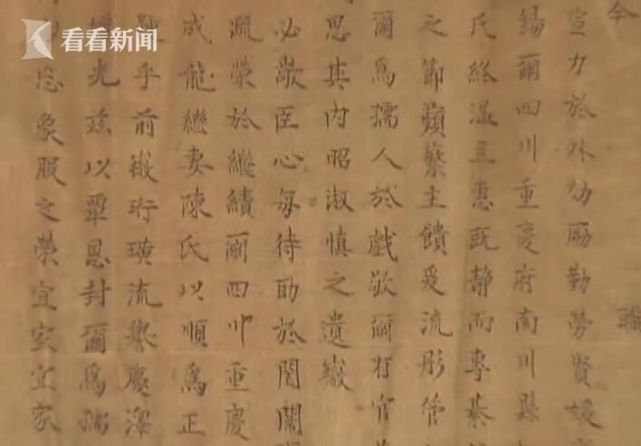 看看新闻
宣力於外劬勵勤勞賢媛
錫爾四川重慶府南川縣
氏終溫且惠既靜而專綦
之節蘋蘩主饋爰流彤管
爾爲孺人於戲敬爾有官
思其內昭淑慎之遺徽
必敬臣心每待助於閨闈
疏榮於繼績爾四川重慶
成龍繼妻陳氏以順爲正
乎前徽珩璜流譽慶澤
光茲以覃恩封爾爲孺
象服之榮宜室宜家